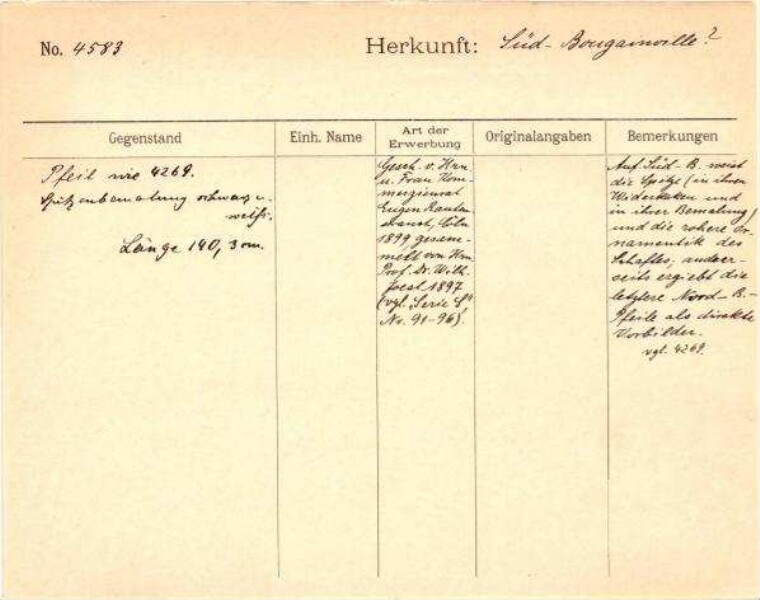 No. 4583
Herkunft: Süd-Bougainville?
Gegenstand
Einh. Name
Art der
Erwerbung
Originalangaben
Bemerkungen
Pfeil wie 4269.
Spitzenbemalung schwarz u.
weiß.
Länge 140,3 cm.
Gesch. v. Hrn
u. Frau Kom-
merzienrat
Eugen Rauten-
strauch, Cöln
1899, gesam-
melt von Hrn
Prof. Dr. Wilh.
Joest 1897
(vgl. "Serie S"
No. 91-96).
Auf Süd-B. weist
die Spitze (in ihren
Widerhaken und
in ihrer Bemalung)
und die rohere Or-
namentik des
Schaftes; andrer-
seits ergiebt die
letztere Nord-B.-
Pfeile als direkte
Vorbilder.
vgl. 4269.